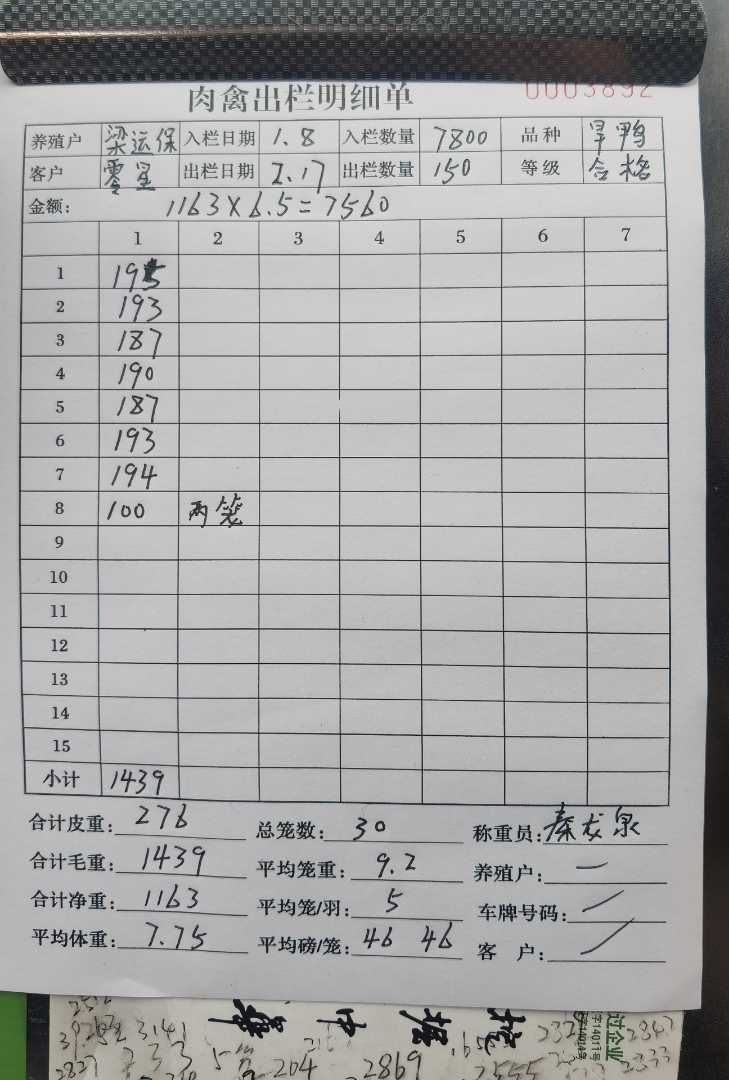 肉禽出栏明细单 0003892
养殖户 梁运保 入栏日期 1.8 入栏数量 7800 品种 旱鸭
客户 零星 出栏日期 2.17 出栏数量 150 等级 合格
金额: 1163×6.5=7560
1 2 3 4 5 6 7
1 195
2 193
3 187
4 190
5 187
6 193
7 194
8 100 两笼
9
10
11
12
13
14
15
小计 1439
合计皮重: 276 总笼数: 30 称重员: 秦龙泉
合计毛重: 1439 平均笼重: 9.2 养殖户: 一
合计净重: 1163 平均笼/羽: 5 车牌号码:
平均体重: 7.75 平均磅/笼: 46 46 客 户:
3141
204 2869
过企业